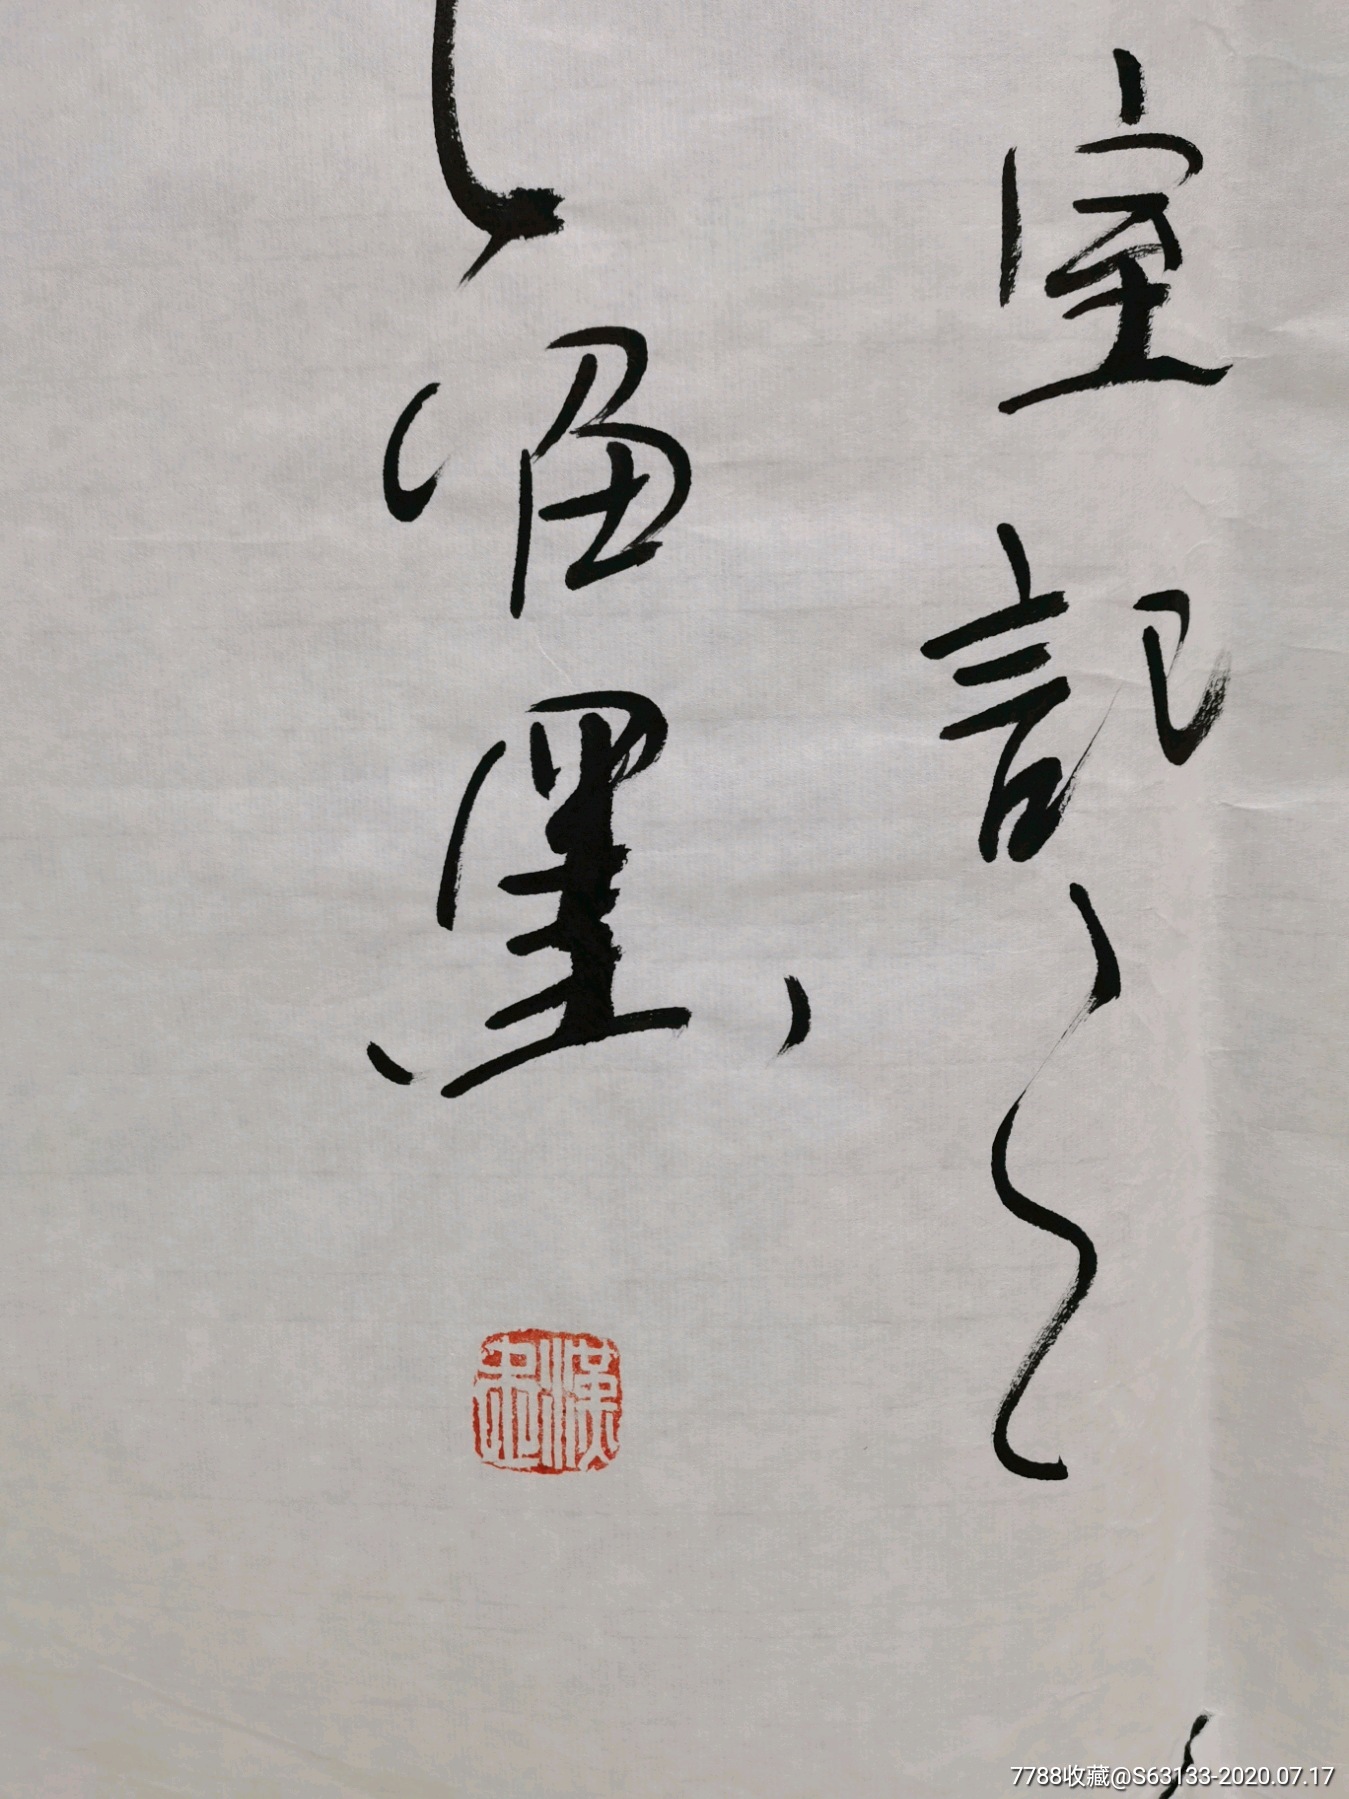 室記之
留墨
7788收藏@S63133-2020.07.17